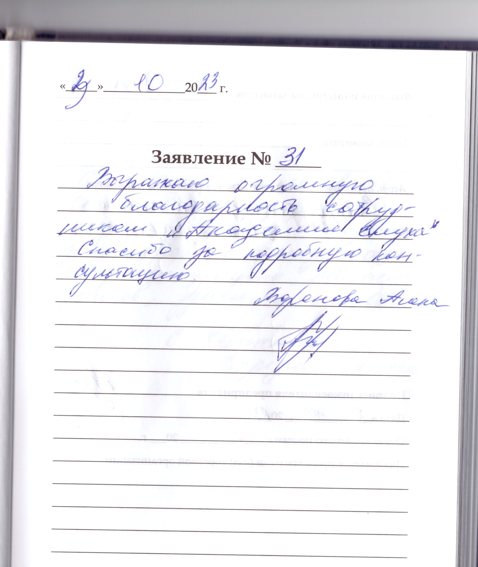 «29» 10 2023 г.
Заявление № 31
Выражаю огромную
благодарность сотруд-
никам "Академии слуха"
Спасибо за подробную кон-
сультацию.
Воронова